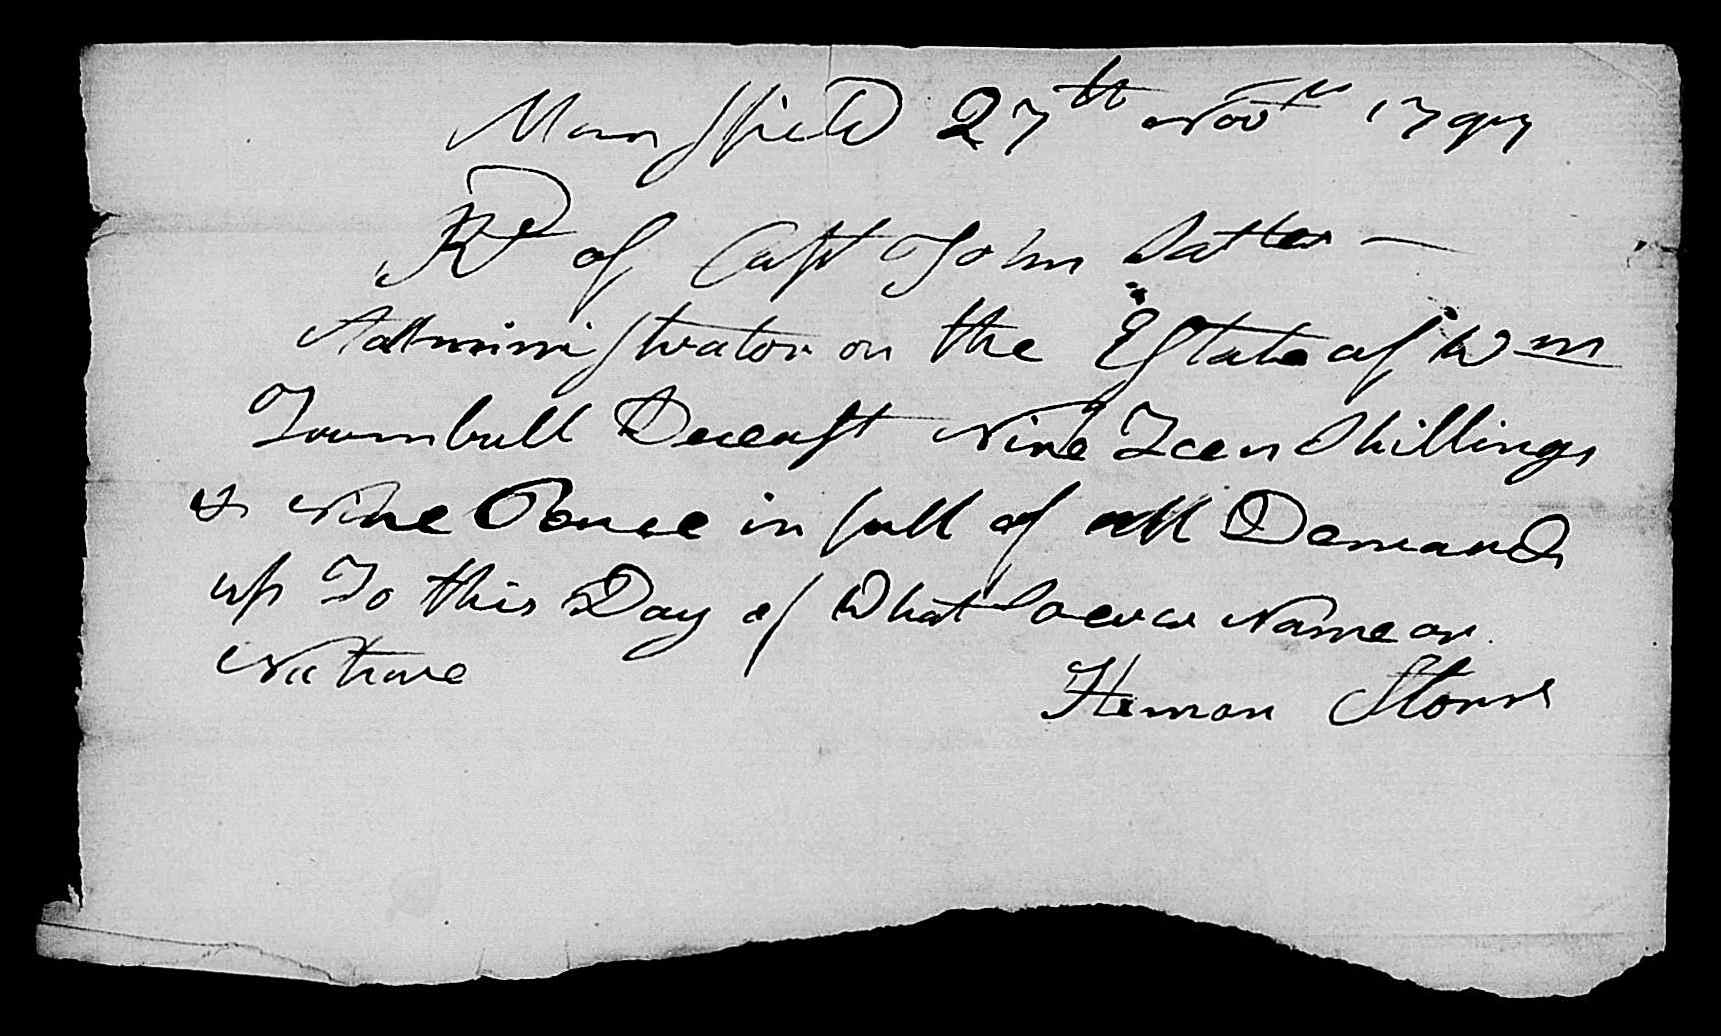 Mansfield 27th Novr 1797
Rd of Capt John Salter —
Administrator on the Estate of Wm
Tournbull Deceast Nine Teen Shillings
& Nine Pence in full of all Demands
up To this Day of What Soever Name or
Nature
Heman Storrs